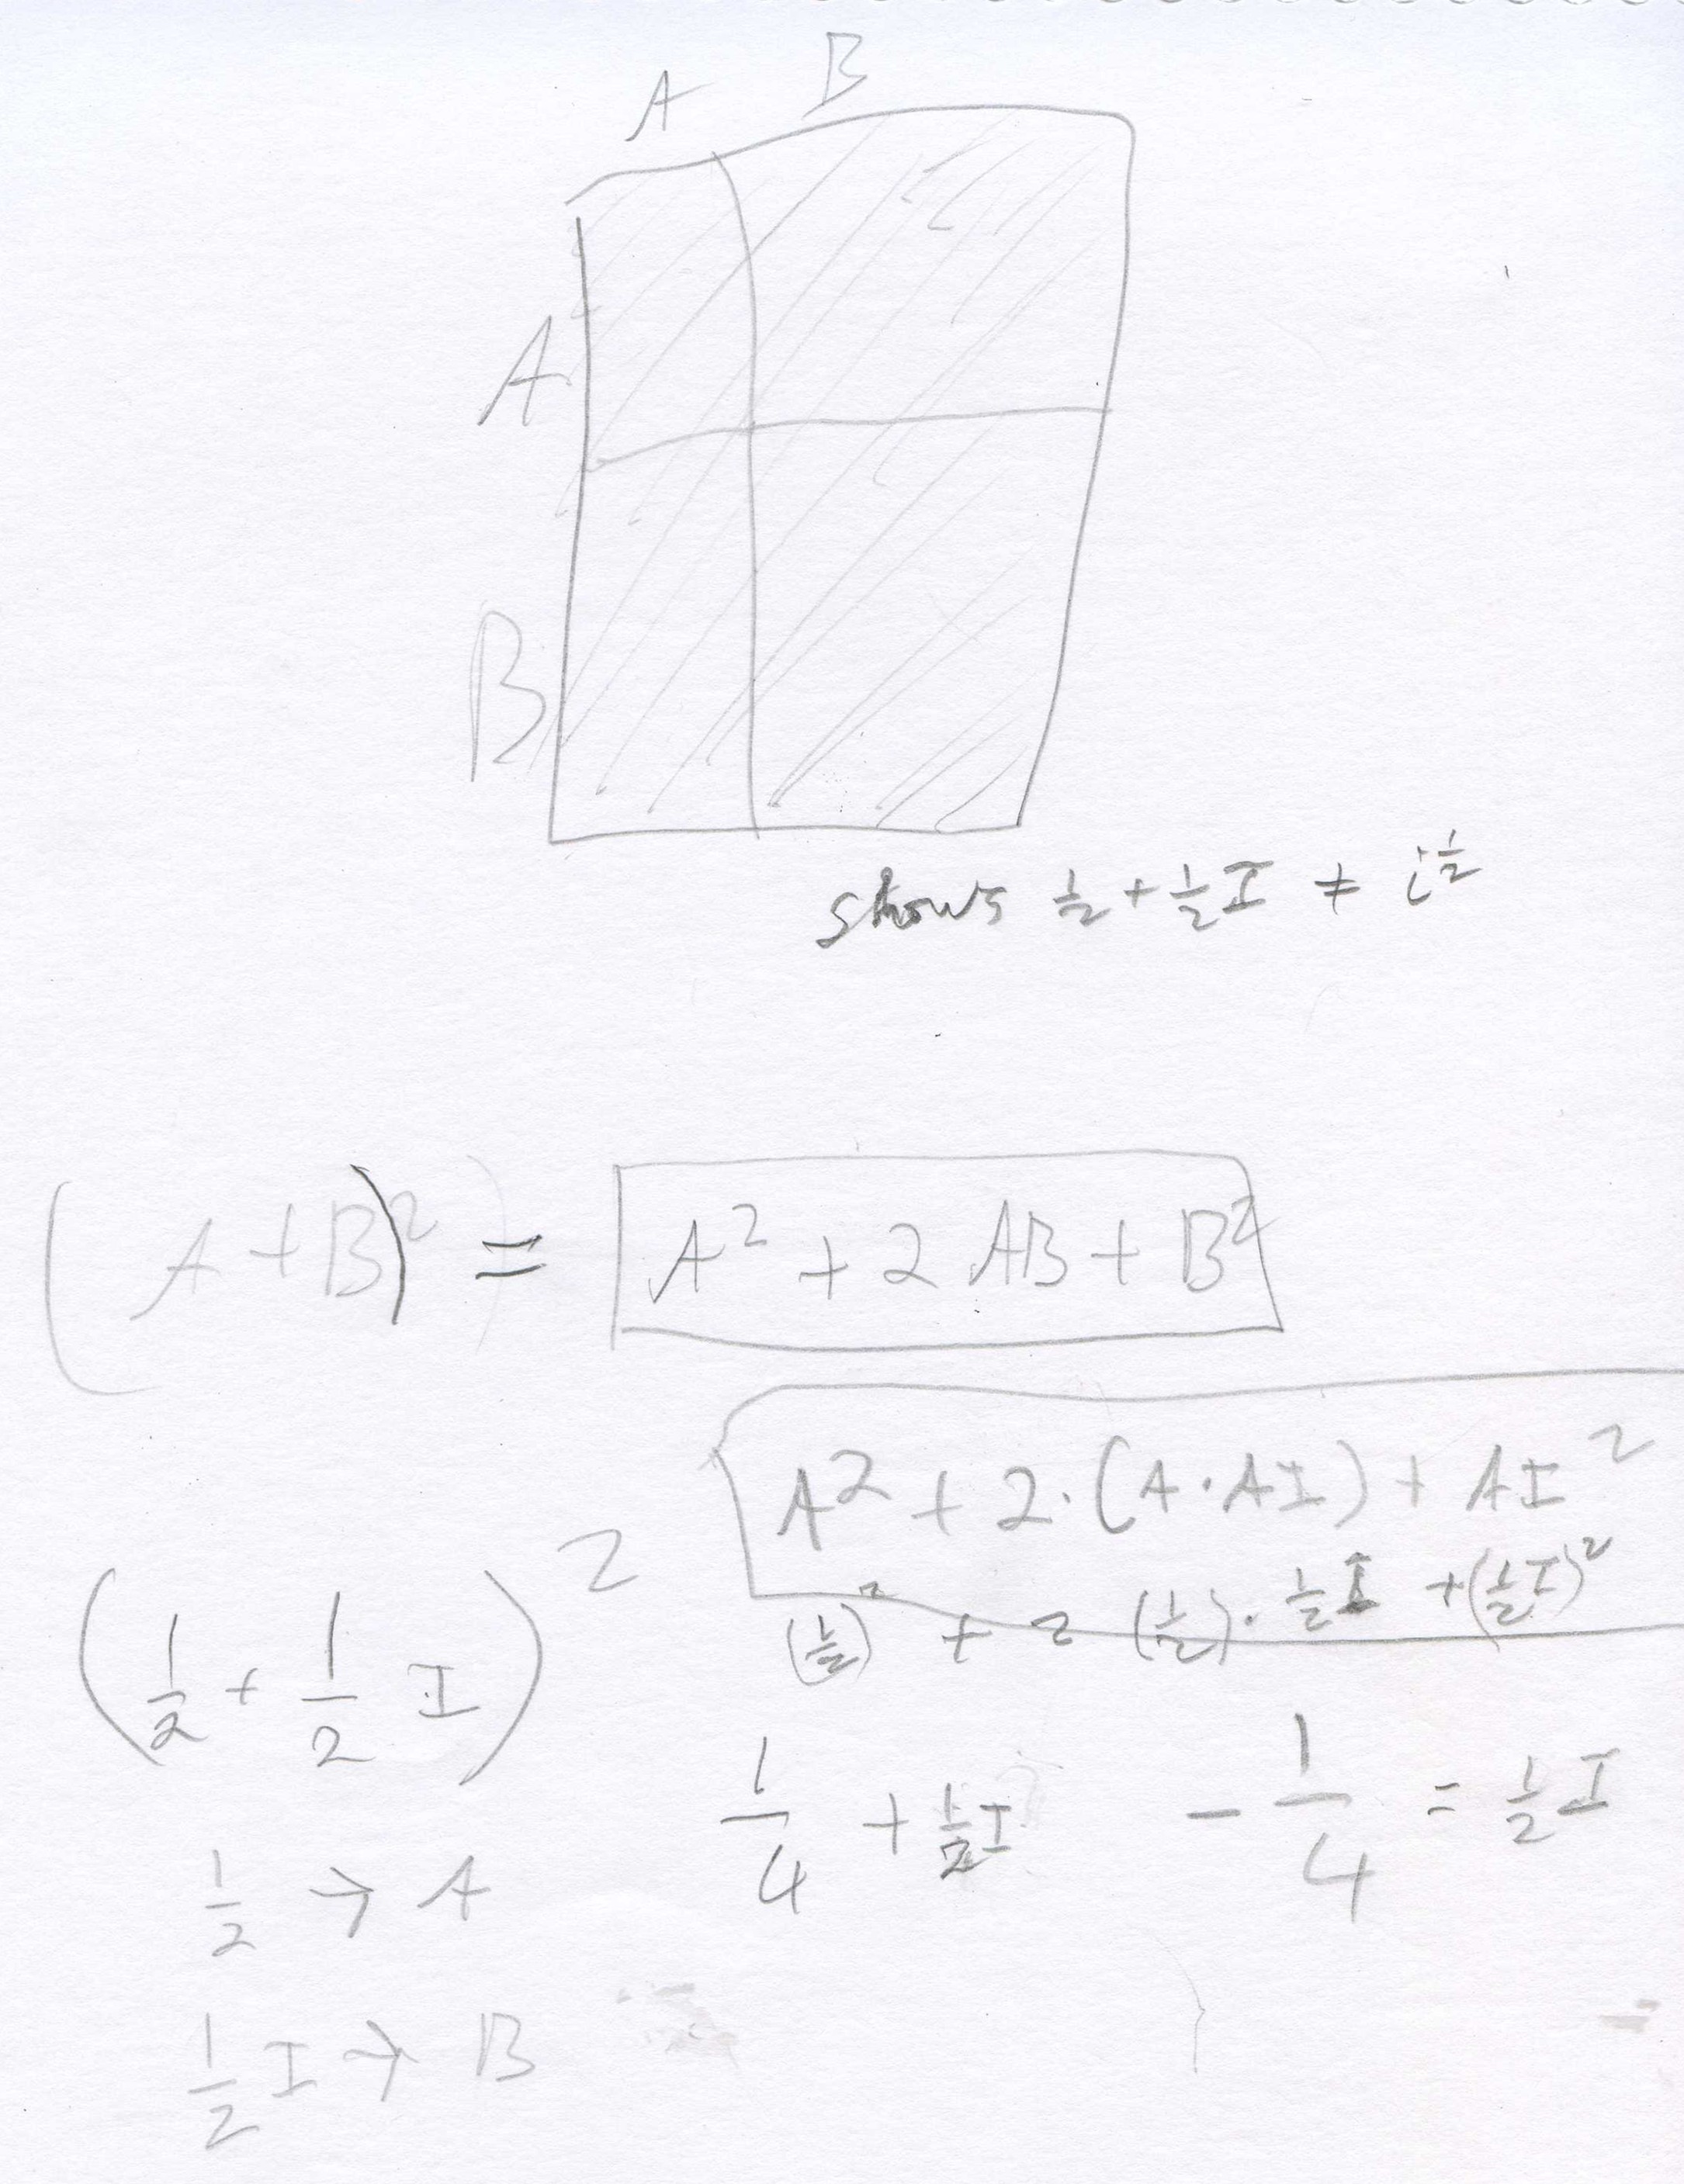 A B
A
B
shows ½ + ½ I ≠ i^½
(A + B)² = A² + 2 AB + B²
A² + 2·(A·AI) + AI²
(½ + ½ I)²
(½)² + 2 (½)·½ I + (½ I)²
¼ + ½ I - ¼ = ½ I
½ → A
½ I → B